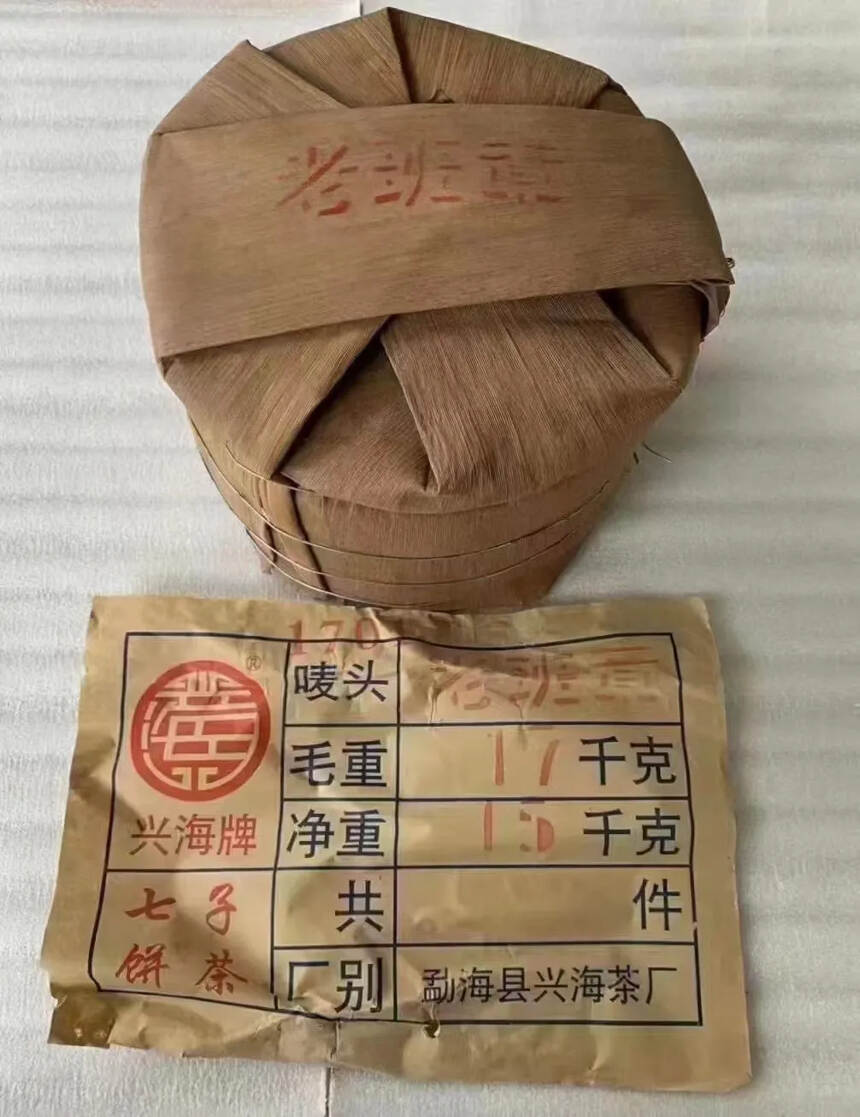 老班章
170
®
唛头 老班章
毛重 17 千克
兴海牙牌
净重 15 千克
七子
饼茶
共 件
厂别 勐海县兴海茶厂